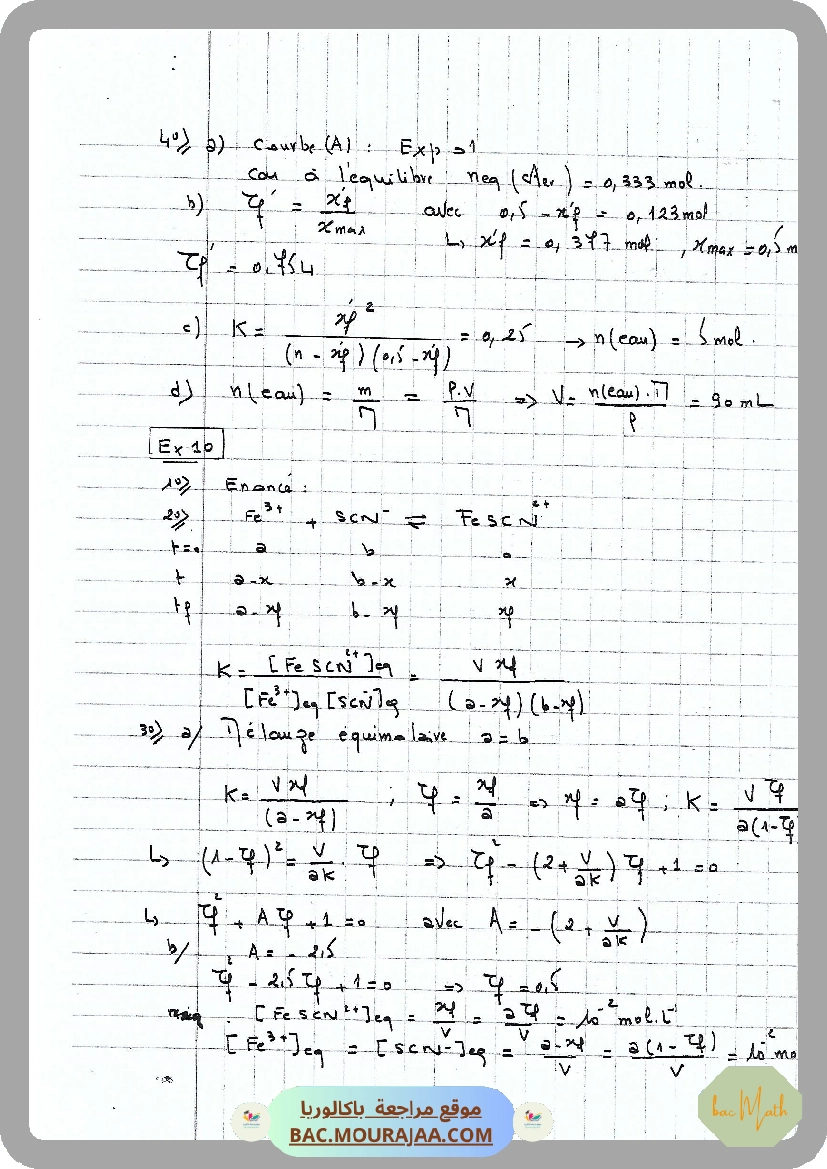 4°) a) Courbe (A) : Exp → 1
car à l'équilibre neq (Aer) = 0,333 mol.
b) τf' = x'f / xmax avec 0,5 - x'f = 0,123 mol
↳ x'f = 0,377 mol, xmax = 0,5 m
τf' = 0,754
c) K = x'f² / (n - x'f)(0,5 - x'f) = 0,25 → n(eau) = 5 mol.
d) n(eau) = m/M = ρ.V/M => V = n(eau).M/ρ = 90 mL
Ex 10
1°) Enoncé :
2°) Fe³⁺ + SCN⁻ ⇌ FeSCN²⁺
t=0 a b 0
t a-x b-x x
tf a-xf b-xf xf
K = [FeSCN²⁺]eq / [Fe³⁺]eq [SCN⁻]eq = V xf / (a-xf)(b-xf)
3°) a/ Mélange équimolaire a = b
K = V xf / (a-xf) ; τf = xf/a => xf = aτf ; K = V τf / a(1-τf
↳ (1-τf)² = V/aK . τf => τf² - (2 + V/aK) τf + 1 = 0
↳ τf² + A τf + 1 = 0 avec A = -(2 + V/aK)
b/ A = - 2,5
τf² - 2,5 τf + 1 = 0 => τf = 0,5
[FeSCN²⁺]eq = xf/V = aτf/V = 10⁻² mol.L⁻¹
[Fe³⁺]eq = [SCN⁻]eq = a-xf/V = a(1-τf)/V = 10⁻² mo
موقع مراجعة باكالوريا
BAC.MOURAJAA.COM
bac Math